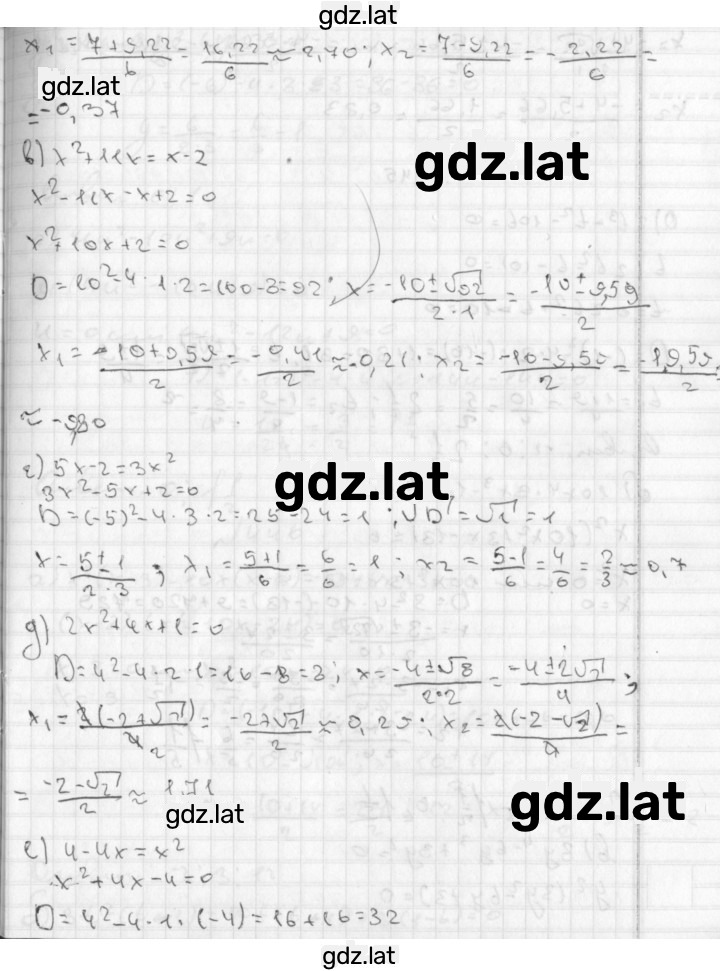 gdz.lat
x₁ = (7+9,22)/6 = 16,22/6 ≈ 2,70; x₂ = (7-9,22)/6 = -2,22/6 =
gdz.lat
= -0,37
в) x²+11x = x-2
gdz.lat
x²-11x-x+2=0
x²+10x+2=0
D=10²-4·1·2=100-8=92; x = (-10±√92)/(2·1) = (-10±9,59)/2
x₁ = (-10+9,59)/2 = -0,41/2 ≈ -0,21; x₂ = (-10-9,59)/2 = -19,59/2
≈ -9,80
г) 5x-2=3x²
gdz.lat
3x²-5x+2=0
D=(-5)²-4·3·2=25-24=1; √D=√1=1
x = (5±1)/(2·3); x₁ = (5+1)/6 = 6/6 = 1; x₂ = (5-1)/6 = 4/6 = 2/3 ≈ 0,7
д) 2x²+4x+1=0
D=4²-4·2·1=16-8=8; x = (-4±√8)/(2·2) = (-4±2√2)/4;
x₁ = 2(-2+√2)/4 2 = (-2+√2)/2 ≈ 0,29; x₂ = 2(-2-√2)/4 =
= (-2-√2)/2 ≈ 1,71
gdz.lat
gdz.lat
е) 4-4x=x²
x²+4x-4=0
D=4²-4·1·(-4)=16+16=32
gdz.lat